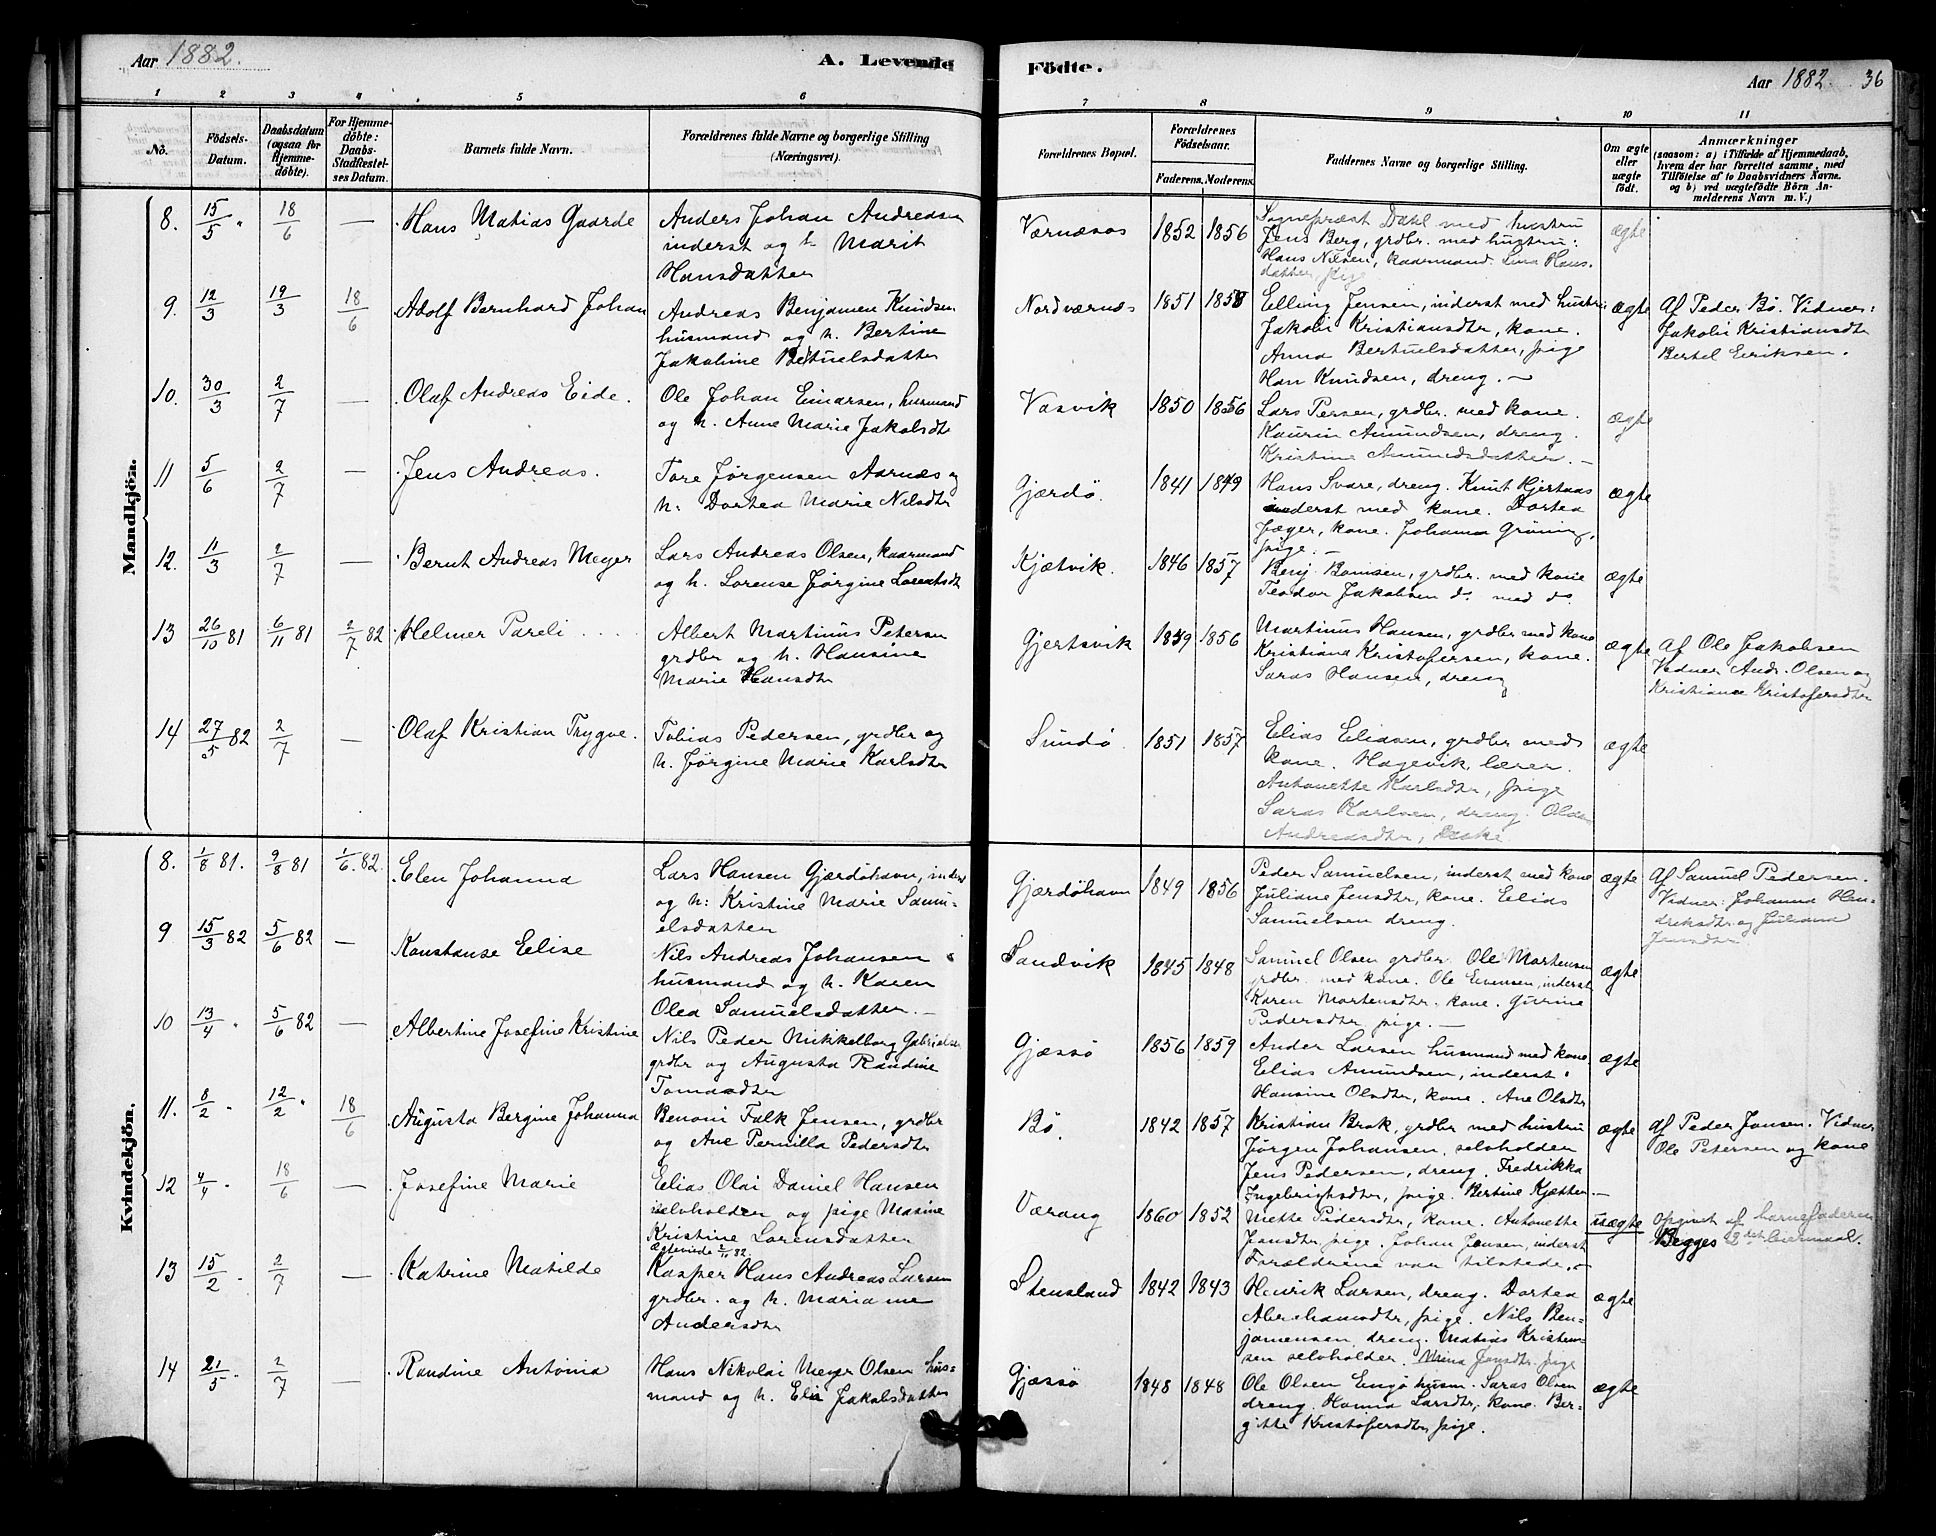 Aar 1882.
A. Levende
Födte.
Aar 1882. 36
1 2 3 4 5 6
7 8 9 10 11
No.
Födsels-
Datum.
Daabsdatum
(ogsaa for
Hjemme-
döbte).
For Hjemme-
döbte:
Daabs-
Stadfæstel-
ses Datum.
Barnets fulde Navn.
Forældrenes fulde Navne og borgerlige Stilling
(Næringsvei).
Forældrenes Bopæl.
Forældrenes
Födselsaar.
Faderens. Moderens.
Faddernes Navne og borgerlige Stilling.
Om ægte
eller
uægte
födt.
Anmærkninger
(saasom: a) i Tilfælde af Hjemmedaab,
hvem der har forrettet samme, med
Tilföielse af to Daabsvidners Navne.
og b) ved uægtefödte Börn An-
melderens Navn m. V.)
Mandkjön.
8. 15/5 " 18/6 — Hans Matias Gaarde
Anders Johan Andreasen
inderst og h. Marit
Hansdatter
Værnæsos 1852 1856
Sognepræst Dahl med hustru
Jens Berg, grdbr. med hustru:
Hans Nilsen, kaarmand. Lina Hans-
datter, pige
ægte
9. 12/3 19/3 18/6 Adolf Bernhard Johan
Andreas Benjamen Knudsen
husmand og h. Bertine
Jakobine Betuelsdatter
Nordværnes 1851 1858
Elling Jensen, inderst med hustru
Jakobi Kristiansdtr, kone.
Anna Bertuelsdatter, pige
Han Knudsen, dreng. —
ægte
Af Peder Bø. Vidner:
Jakobi Kristiansdtr
Bertel Eeriksen.
10. 30/3 2/7 — Olaf Andreas Eide.
Ole Johan Einarsen, husmand
og h. Anne Marie Jakobsdtr
Vasvik 1850 1856
Lars Persen, grdbr. med kone.
Kaurin Amundsen, dreng.
Kristine Amundsdatter. —
ægte
11 5/6 2/7 — Jens Andreas.
Tore Jørgensen Aarnæs og
h: Dortea Marie Nilsdtr
Gjærdø. 1841 1849
Hans Svare, dreng. Knut Hjertaas
inderst med kone. Dortea
Jæger, kone. Johanna Grüning,
pige. —
ægte
12. 11/3 2/7 — Bernt Andreas Meyer
Lars Andreas Olsen, kaarmand
og h. Lorense Jørgine Lorentsdt
Kjætvik. 1846 1857
Benj. Bomsen, grdbr. med kone
Teodor Jakobsen do. med do.
ægte
13 26/10 81 6/11 81 2/7 82 Helmer Pareli . . . .
Albert Martinus Petersen
grdbr og h. Hansine
Marie Hansdtr
Gjertsvik 1859 1856
Martinus Hansen, grdbr med kone
Kristiane Kristofersen, kone.
Saras Hansen, dreng
ægte
Af Ole Jakobsen
Vidner Andr. Olsen og
Kristiane Kristofersdtr
14 27/5 82 2/7 — Olaf Kristian Trygve.
Tobias Pedersen, grdbr og
h. Jørgine Marie Karlsdtr
Sundø. 1851 1857
Elias Eliasen, grdbr med
kone. Hagevik lærer.
Antonette Karlsdtr, pige
Saras Karlsen, dreng. Olea
Andreasdtr,
ægte
Kvindekjön.
8. 1/8 81. 9/8 81 1/6. 82. Elen Johanna
Lars Hansen Gjærdøhavn, inders
og h: Kristine Marie Samu-
elsdatter
Gjærdøhavn 1849 1856
Peder Samuelsen, inderst med kone
Juliane Jensdtr, kone. Elias
Samuelsen dreng.
ægte
Af Samuel Pedersen.
Vidner: Johanna Hen-
driksdtr og Juliana
Jensdtr
9 15/3 82 5/6 82 — Konstanse Eelise
Nils Andreas Johansen
husmand og h. Karen
Olea Samuelsdatter. —
Sandvik 1845 1848
Samuel Olsen grdbr. Ole Mortensen
grdbr. med kone. Ole Evensen, inderst
Karen Mortensdtr. kone. Gurine
Pedersdtr pige. —
ægte
10 13/4 " 5/6 82 — Albertine Josefine Kristine
Nils Peder Mikkelborg Gabrielsen
grdbr og Augusta Randine
Tomasdtr
Gjæssø 1856 1859
Ander Larsen husmand med kone
Eelias Amundsen, inderst.
Hansine Olsdtr, kone. Ane Olsdtr
ægte
11. 8/2 " 12/2 " 18/6 Augusta Bergine Johanna
Benoni Falk Jensen, grdbr
og Ane Pernilla Pedersdtr
Bø. 1842 1857
Kristian Brok, grdbr med hustru
Jørgen Johansen, selvholden
Jens Pedersen, dreng. Fredrikka
Ingebrigtsdtr, pige. Bertine Kjætter. —
ægte
Af Peder Jonsen. Vidner
Ole Petersen og kone
12 4/4 " 18/6 — Josefine Marie
Eelias Olai Daniel Hansen
selvholden og pige Masine
Kristine Lorensdatter
Værang 1860 1852
Mette Pedersdtr, kone. Antonette
Jonsdtr, pige. Johan Jensen, inderst
Forældrene var tilstede. —
uægte
opgivet af barnefaderen
Begges 2det leiermaal.
13 15/2 " 2/7 — Katrine Matilde
Kasper Hans Andreas Larsen
grdbr. og h. Maria
Andersdtr
Stensland 1842 1843
Henrik Larsen, dreng. Dortea
Abrahamsdtr, pige. Nils Ben-
jamensen, dreng. Matias Kristen-
sen selvholder. Mina Jensdtr. pige
ægte
14 21/5 " 2/7 — Randine Antonia
Hans Nikolai Meyer Olsen hus-
mand og h. Elia Jakobsdatter
Gjæssø 1848 1848
Ole Olsen Engø husm. Saras Olsen
dreng. Hanna Larsdtr, kone. Ber-
gitte Kristofersdtr, pige.
ægte